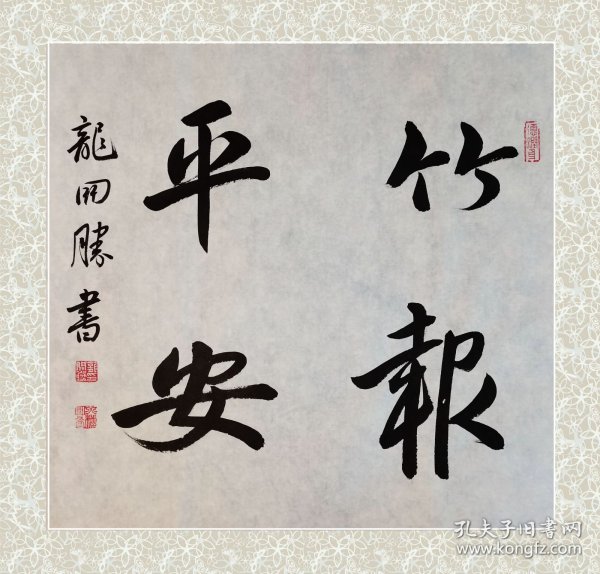 竹報
平安
龍開勝書
孔夫子旧书网
www.kongfz.com